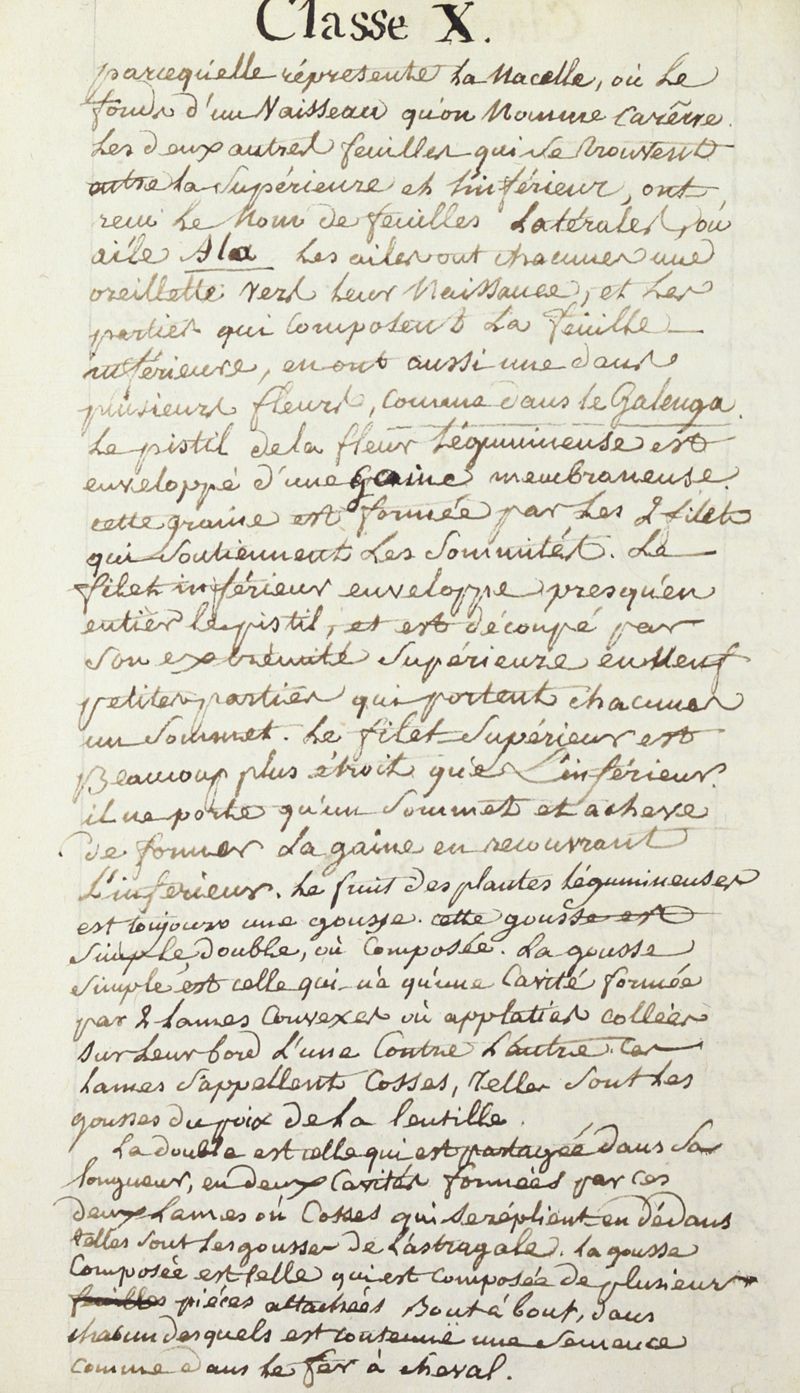 Classe X.
parcequ'elle répresente la Nacelle, où le
fonds d'un Vaisseau qu'on Nomme carêne.
les deux autres feuilles qui se trouvent
outre la supérieure et l'inférieur, ont
recu le Nom de feuilles latérales, où
aîle Ala les ailes ont chacunes une
oreillette vers leur Naissance, et les
parties qui composent la feuille
inférieure, en ont aussi une dans
plusieurs fleurs, comme dans le Galenga.
le pistil de la fleur légumineuse est
enveloppé d'une gaine membraneuse.
cette graine est formée par les 2 filet
qui soutiennent les sommités. Le
filet inférieur enveloppe presqu'en
entier le pistil, et est découpé par
son extrémité supérieure en Neuf
petites parties qui portent chacunes
un sommet. le filet supérieur est
Beaucoup plus étroit que L'inférieur.
il ne porte qu'un sommet et acheve
de former la gaine en recouvrant
L'inferieur. le fruit des plantes légumineuses
est toujours une gousse. cette gousse est
simple, double, où composée. La gousse
simple est celle qui n'a qu'une cavité formée
par 2 lames convexes où applaties collées
sur leur bord l'une contre l'autre. ces
lames s'appellent Cosses, Telles sont les
gousses du poix de la lentille.
La double est celle qui est partagée dans sa
longueur, en deux cavités formées par ces
deux lames où Cosses qui se réplient en dédans
telles sont les gousses de l'astragale. la gousse
Composée est celle qui est composée de plusieurs
feuilles piéces attachées Bout à bout, dans
chacun desquels est contenuë une semence
comme dans le fer à cheval.